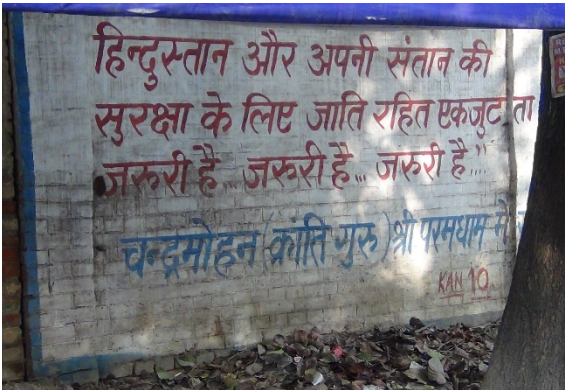 हिन्दुस्तान और अपनी संतान की
सुरक्षा के लिए जाति रहित एकजुटता
जरुरी है... जरुरी है... जरुरी है"...
चन्द्रमोहन (क्रांति गुरु) श्री परमधाम
KAN 10